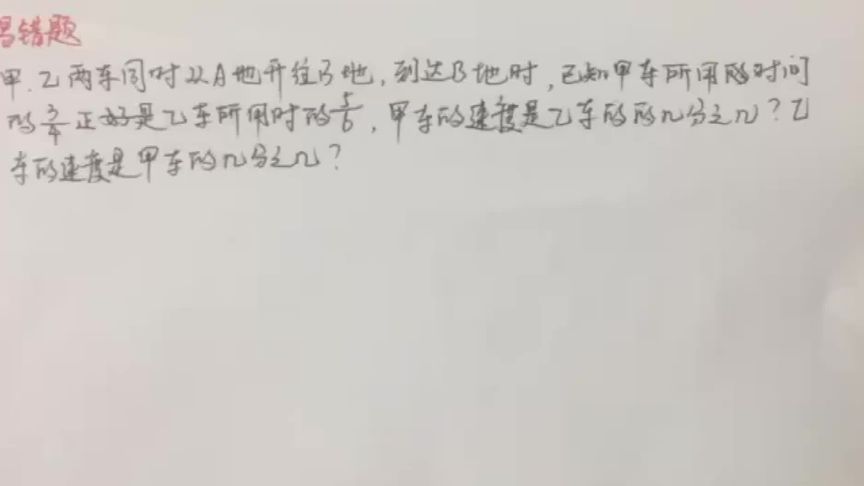 易错题
甲.乙两车同时从A地开往B地,到达B地时,已知甲车所用的时间
的3/4正好是乙车所用时的5/6,甲车的速度是乙车的的几分之几?乙
车的速度是甲车的几分之几?